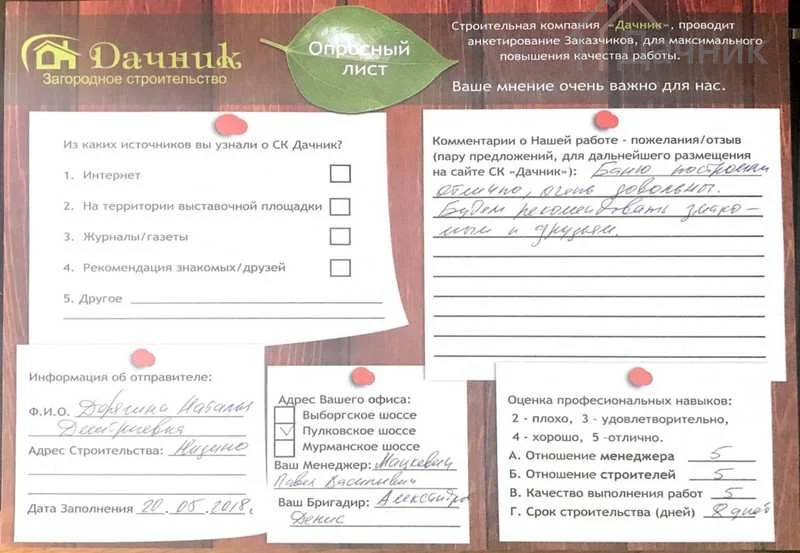 Дачник
Загородное строительство
Опросный
лист
Строительная компания «Дачник», проводит
анкетирование Заказчиков, для максимального
повышения качества работы.
Ваше мнение очень важно для нас.
Дачник
Из каких источников вы узнали о СК Дачник?
1. Интернет
2. На территории выставочной площадки
3. Журналы/газеты
4. Рекомендация знакомых/друзей
5. Другое
Комментарии о Нашей работе - пожелания/отзыв
(пару предложений, для дальнейшего размещения
на сайте СК «Дачник»): Баню построили
отлично, очень довольны.
Будем рекомендовать знако-
мым и друзьям.
Информация об отправителе:
Ф.И.О. Наталья
Дмитриевна
Адрес Строительства: Низино
Дата Заполнения 20.05.2018г.
Адрес Вашего офиса:
Выборгское шоссе
Пулковское шоссе
Мурманское шоссе
Ваш Менеджер: Мацкевич
Павел Васильевич
Ваш Бригадир: Александров
Денис
Оценка професиональных навыков:
2 - плохо, 3 - удовлетворительно,
4 - хорошо, 5 -отлично.
А. Отношение менеджера 5
Б. Отношение строителей 5
В. Качество выполнения работ 5
Г. Срок строительства (дней) 8 дней